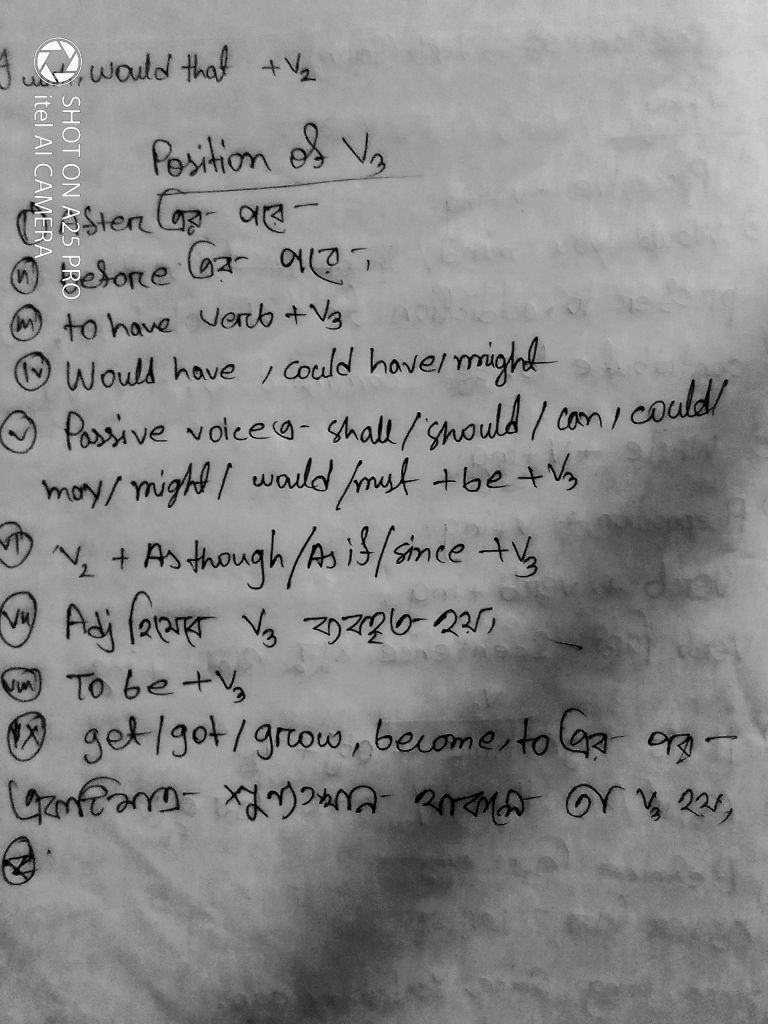 I would that + V2
Position of V3
(i) After এর পরে -
(ii) Before এর পরে,
(iii) to have verb + V3
(iv) Would have, could have, might
(v) Passive voice এ- shall/should/can, could/
may/might/would/must + be + V3
(vi) V2 + As though/As if/since + V3
(vii) Adj হিসেবে V3 ব্যবহৃত হয়,
(viii) To be + V3
(ix) get/got/grow, become, to এর পর -
একটিমাত্র শূন্যস্থান থাকলে তা V3 হয়,
SHOT ON A25 PRO
itel AI CAMERA